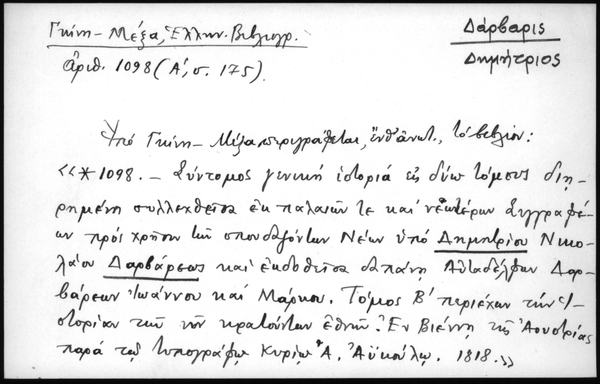 Γκίνη - Μέξα, Ἑλλην. Βιβλιογρ.
ἀριθ. 1098 (Α', σ. 175).
Δάρβαρις
Δημήτριος
Ὑπὸ Γκίνη - Μέξα περιγράφεται, ἔνθ' ἀνωτ., τὸ βιβλίον:
«* 1098. - Σύντομος γενικὴ ἱστορία εἰς δύω τόμους διῃ-
ρημένη συλλεχθεῖσα ἐκ παλαιῶν τε καὶ νεωτέρων Συγγραφέ-
ων πρὸς χρῆσιν τῶν σπουδαζόντων Νέων ὑπὸ Δημητρίου Νικο-
λάου Δαρβάρεως καὶ ἐκδοθεῖσα δαπάνῃ Αὐταδέλφων Δαρ-
βάρεων Ἰωάννου καὶ Μάρκου. Τόμος Β' περιέχων τὴν Ἱ-
στορίαν τῶν νῦν κρατούντων ἐθνῶν. Ἐν Βιέννῃ τῆς Ἀουστρίας
παρὰ τῷ τυπογράφῳ Κυρίῳ Α. Αϋκούλῳ. 1818.»